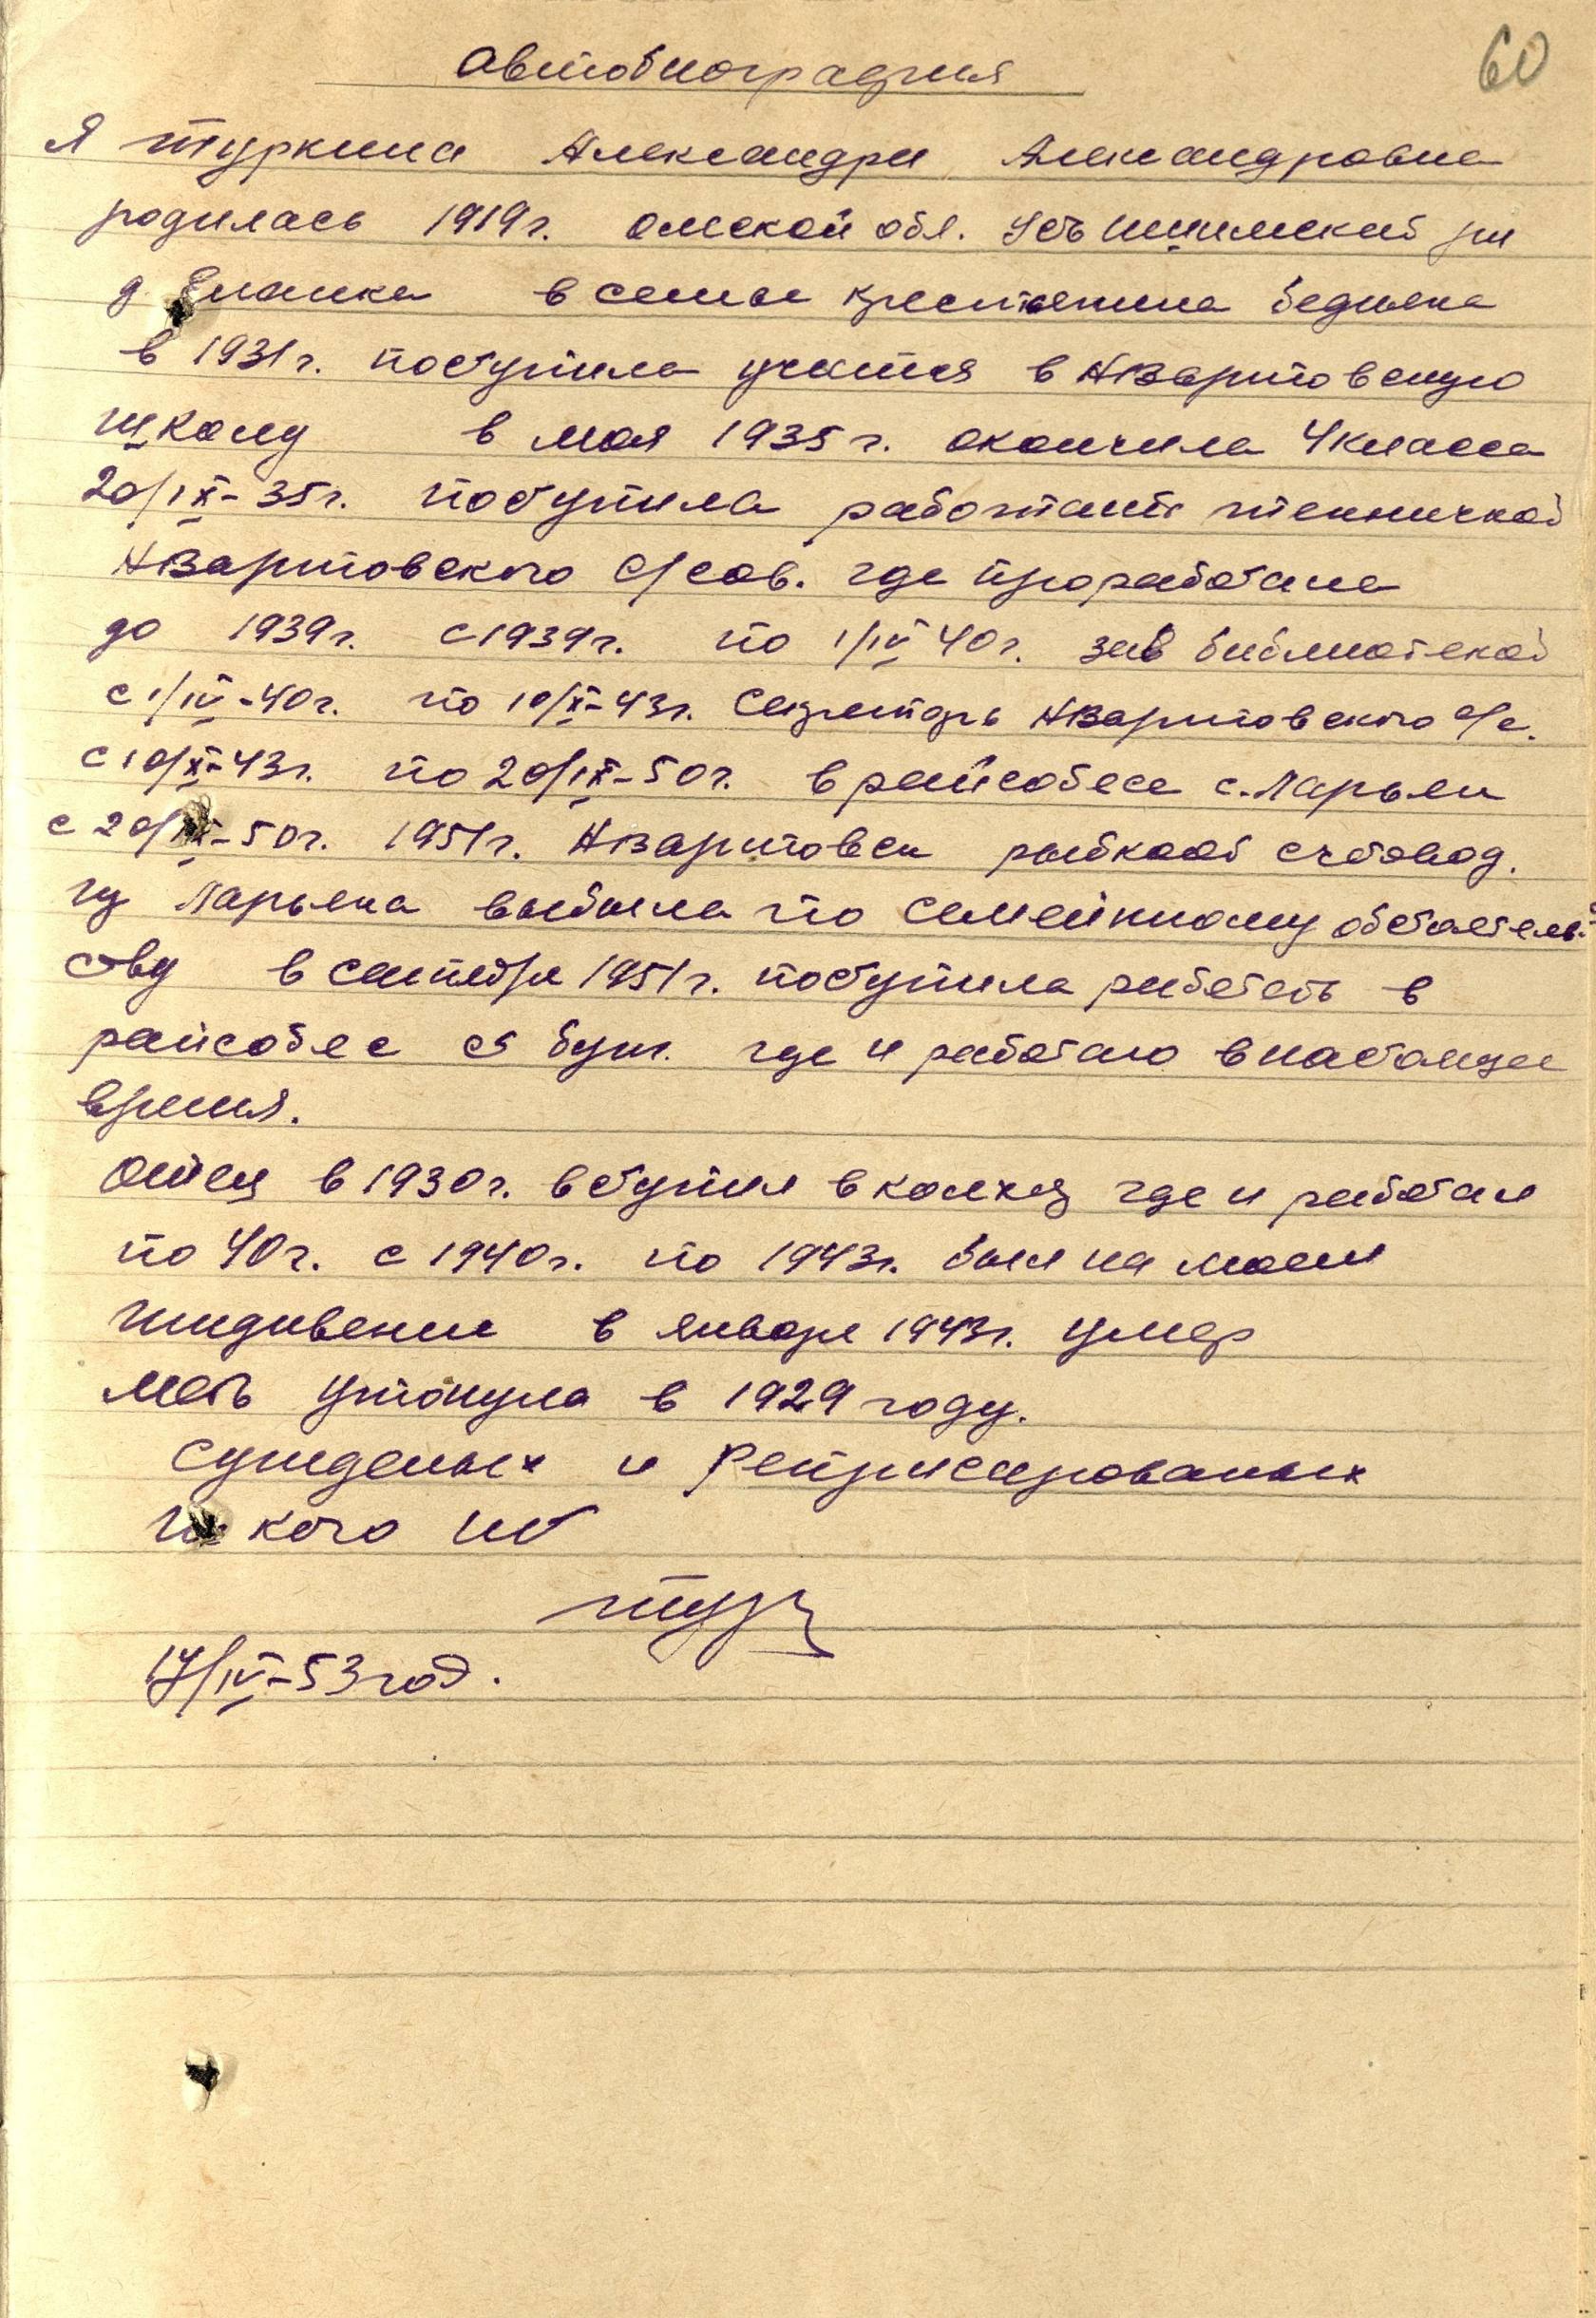 60
Автобиография
Я Туркина Александра Александровна
родилась 1919г. Омской обл. Усть Ишимский р-н
д Еланка в семьи крестьянина бедняка
в 1931г. поступила учится в НВартовскую
школу в мая 1935г. окончила 4 класса
20/IX-35г. поступила работать техничкой
НВартовского с/сов. где проработала
до 1939г. с 1939г. по 1/IV 40г. зав библиотекой
с 1/IV-40г. по 10/XI-43г. Секретарь НВартовского с/с.
с 10/XI-43г. по 20/IX-50г. в райсобесе с. Ларьяк
с 20/IX-50г. 1951г. НВартовск рыбкооп счетовод.
из Ларьяка выбыла по семейнному обстоятель-
ству в сентябре 1951г. поступила работать в
райсобес ст бухг. где и работаю в настоящее
время.
Отец в 1930г. вступил в колхоз где и работал
по 40г. с 1940г. по 1943г. был на моем
иждивении в январе 1943г. умер
мать утонула в 1929 году.
Сужденых и Репрессированых
ни кого нет
17/IV-53 год.